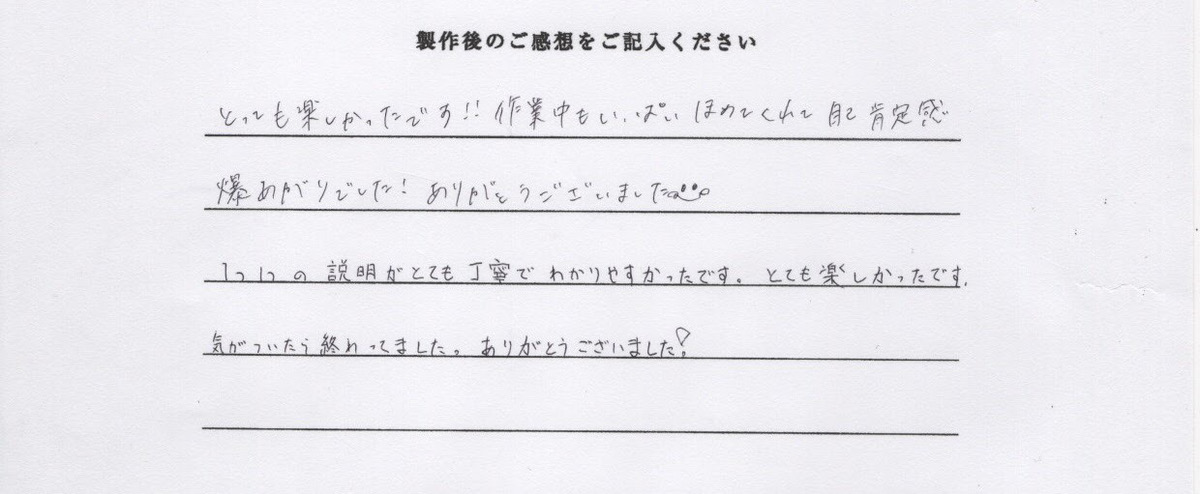 製作後のご感想をご記入ください
とっても楽しかったです!!作業中もいっぱいほめてくれて自己肯定感
爆あがりでした!ありがとうございました
1つ1つの説明がとても丁寧でわかりやすかったです。とても楽しかったです。
気がついたら終わってました。ありがとうございました!